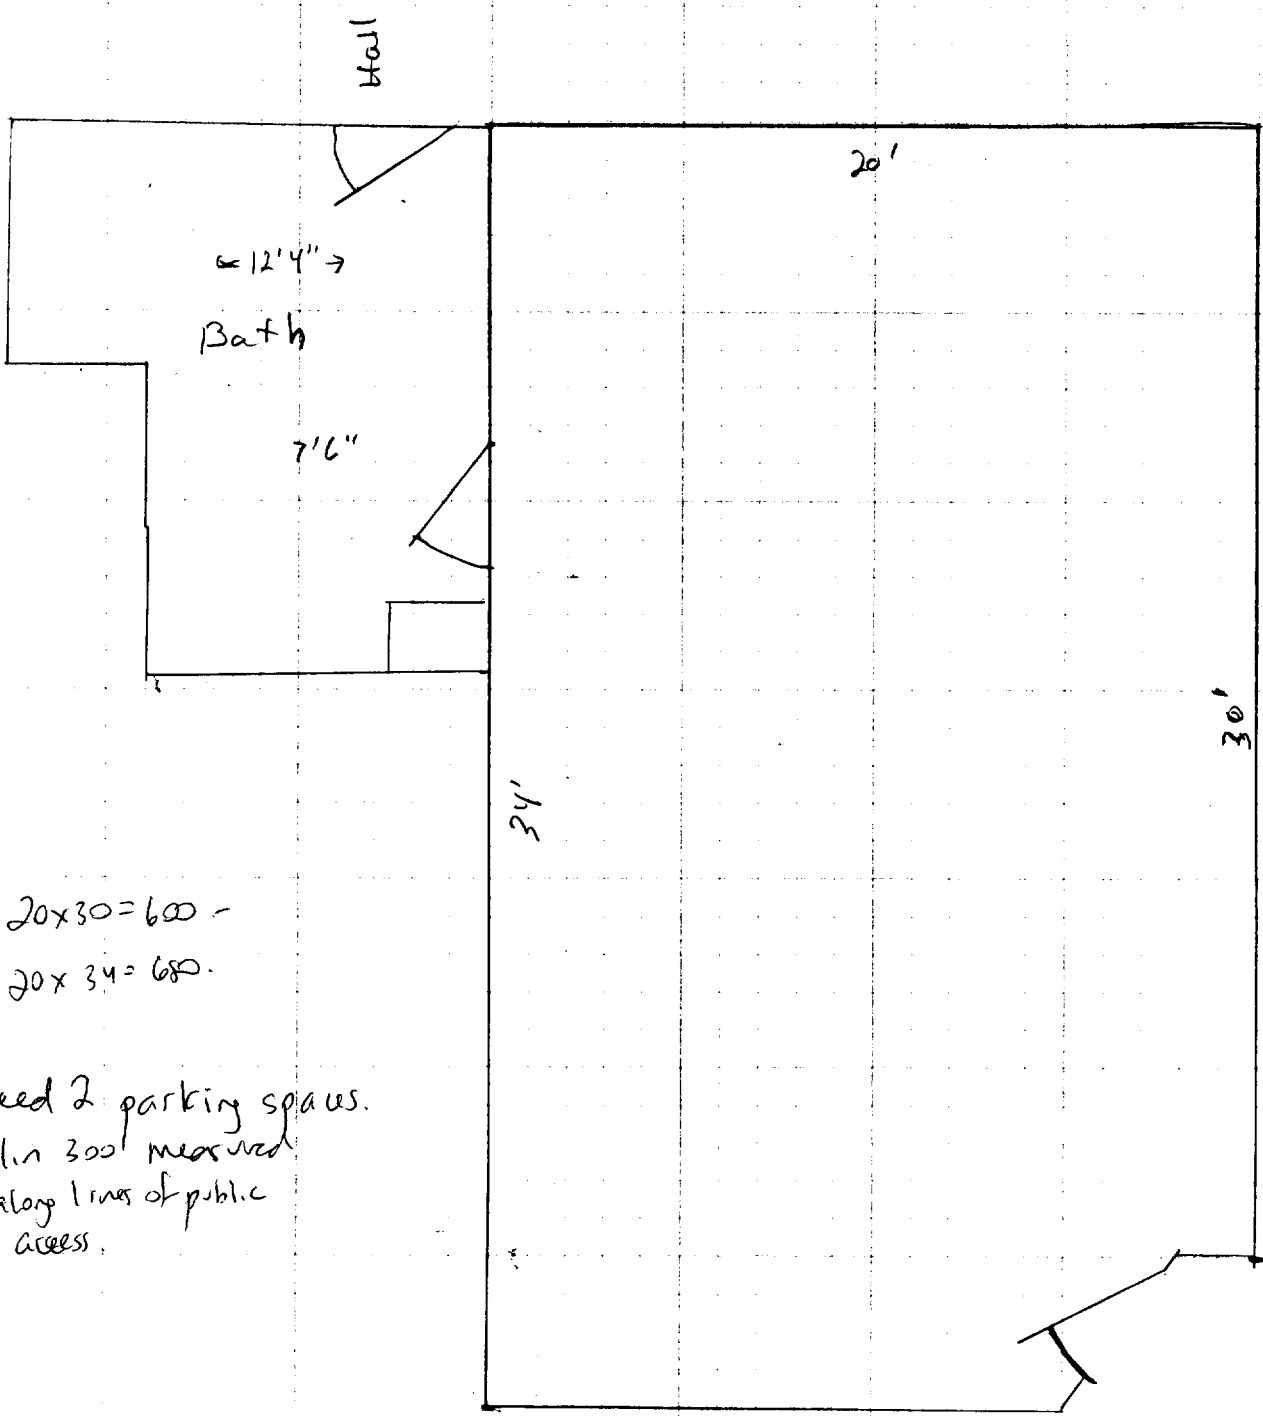 Hall
20'
12'4"
Bath
7'6"
30'
34'
20x30=600 -
20x34=680.
eed 2 parking spaces.
lin 300' measured
along lines of public
access.